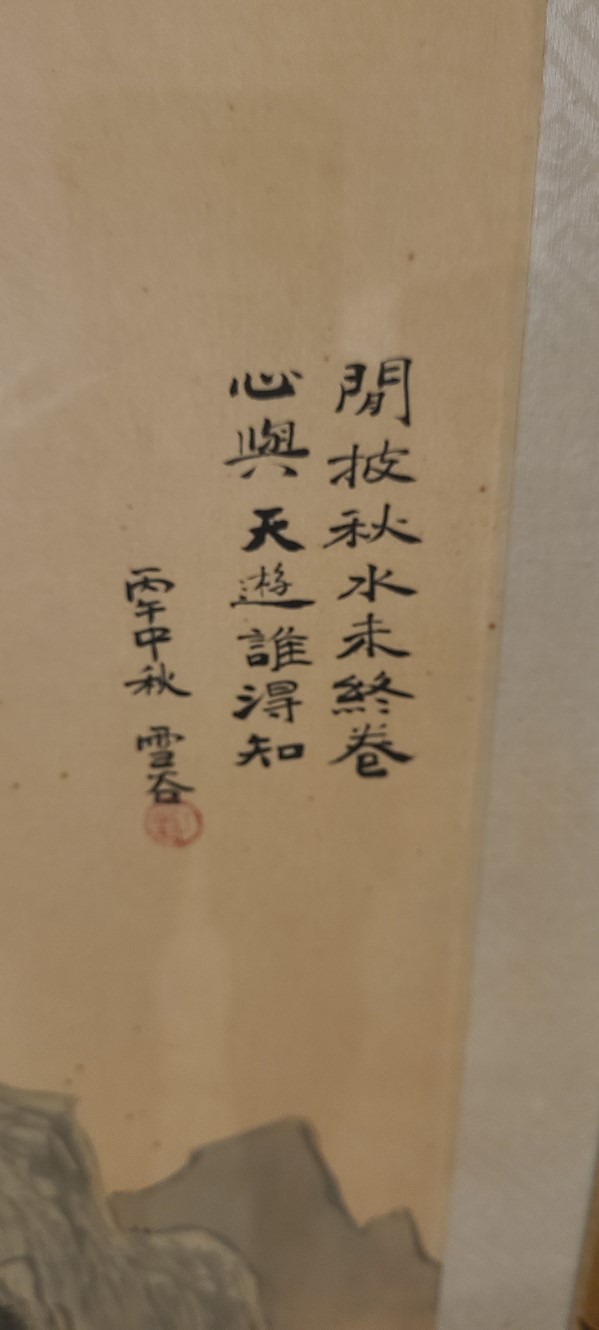 閒披秋水未終卷
心與天遊誰得知
丙午中秋 雪谷